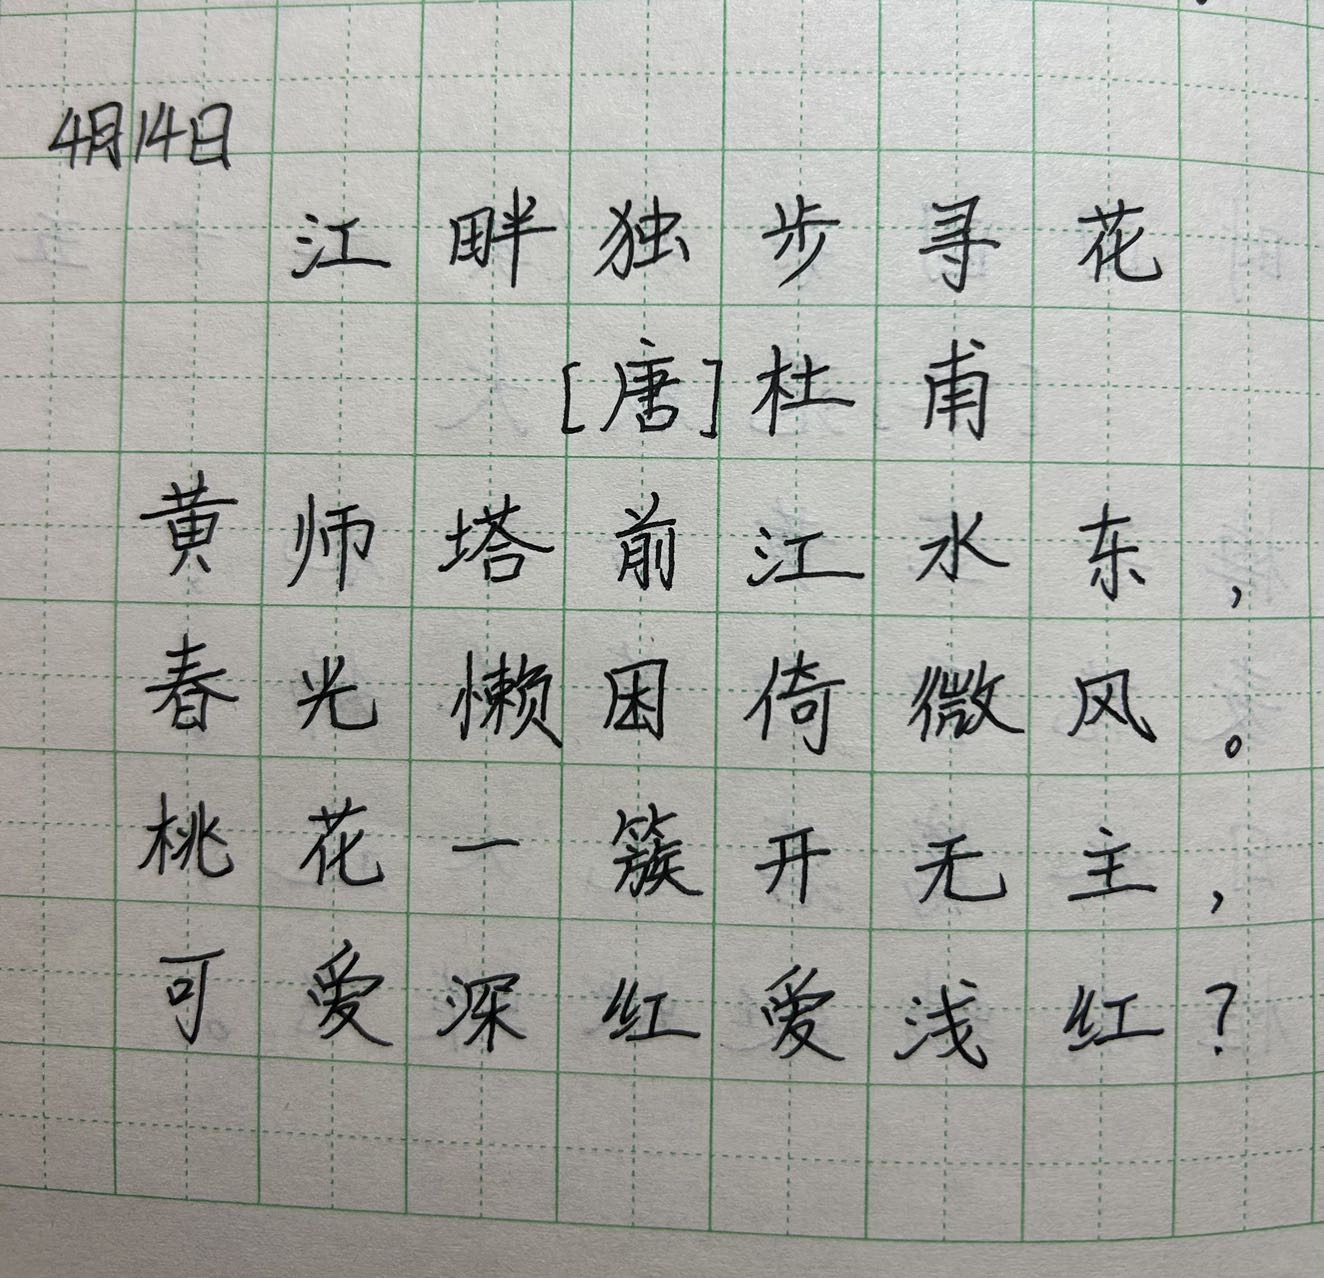 4月14日
江畔独步寻花
[唐]杜甫
黄师塔前江水东，
春光懒困倚微风。
桃花一簇开无主，
可爱深红爱浅红？